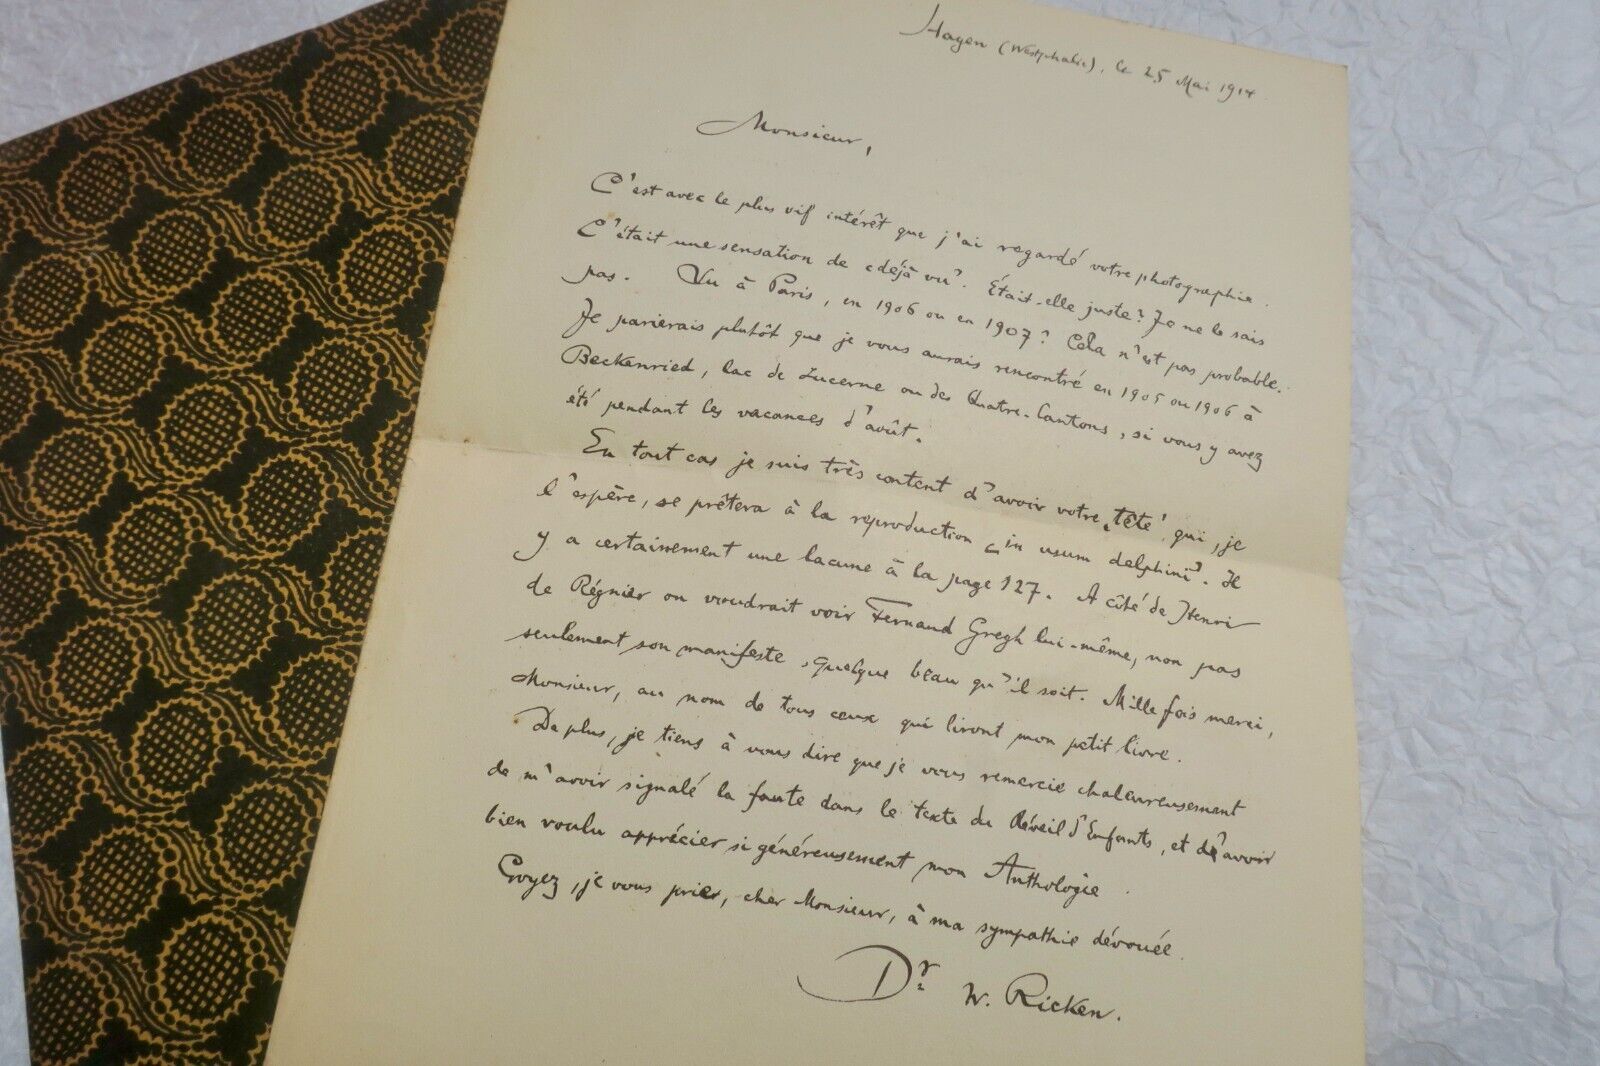 Hagen (Westphalie), le 25 Mai 1914
Monsieur,
C'est avec le plus vif intérêt que j'ai regardé votre photographie.
C'était une sensation de «déjà vu". Était-elle juste? Je ne le sais
pas. Vu à Paris, en 1906 ou en 1907? Cela n'est pas probable.
Je parierais plutôt que je vous aurais rencontré en 1905 ou 1906 à
Beckenried, lac de Lucerne ou des Quatre-Cantons, si vous y avez
été pendant les vacances d'août.
En tout cas je suis très content d'avoir votre „tête" qui, je
l'espère, se prêtera à la reproduction „in usum delphini". Il
y a certainement une lacune à la page 127. A côté de Henri
de Régnier on voudrait voir Fernand Gregh lui-même, non pas
seulement son manifeste, quelque beau qu'il soit. Mille fois merci,
Monsieur, au nom de tous ceux qui liront mon petit livre.
De plus, je tiens à vous dire que je vous remercie chaleureusement
de m'avoir signalé la faute dans le texte du Réveil d'Enfants, et d'avoir
bien voulu apprécier si généreusement mon Anthologie.
Croyez, je vous prie, cher Monsieur, à ma sympathie dévouée.
Dr W. Ricken.